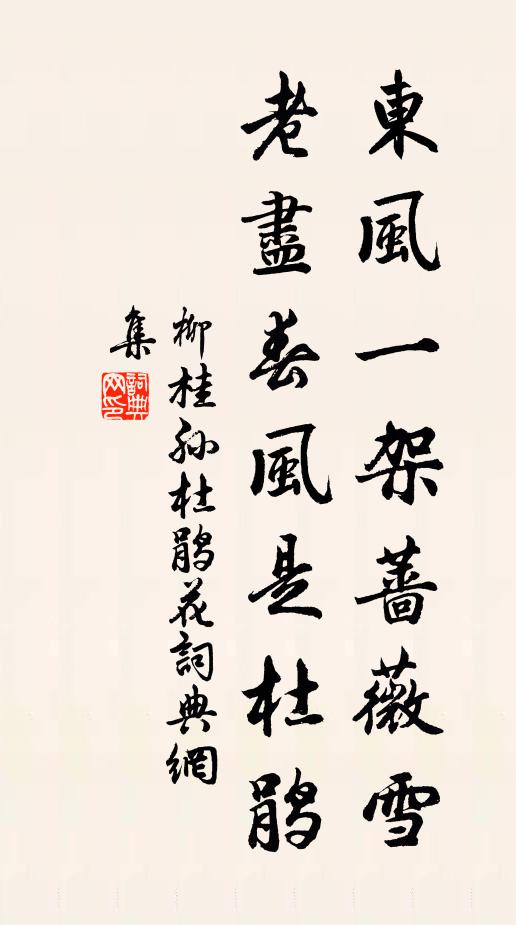 東風一架薔薇雪
老盡春風是杜鵑
柳桂孫杜鵑花詞典網
集
詞典网印